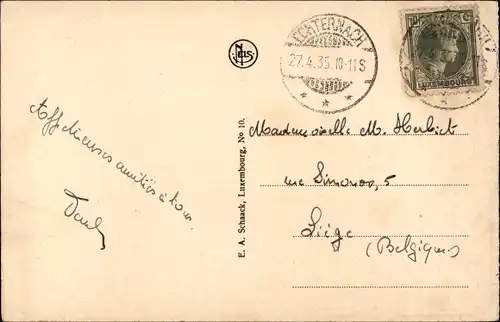 NELS
ECHTERNACH
27.4.35.10-11S
LUXEMBOURG
Affectueuses amitiés à tous.
Paul
E. A. Schaack, Luxembourg, No 10.
Mademoiselle M. Herbiet
rue Simonon, 5
Liége
(Belgique)